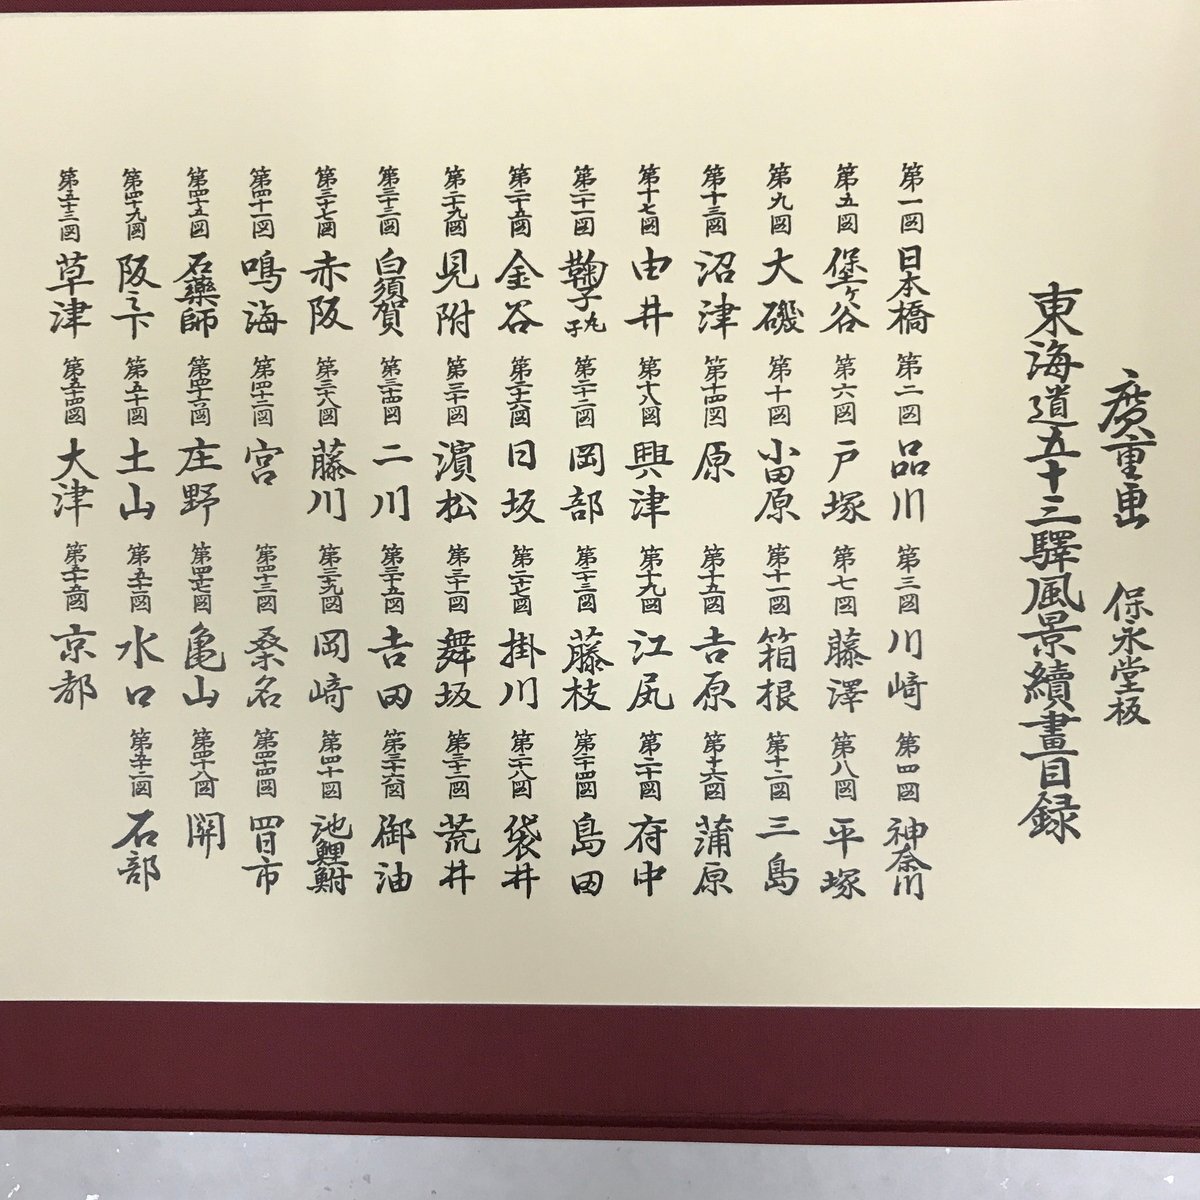 廣重画 保永堂板
東海道五十三驛風景續畫目録
第一図 日本橋 第二図 品川 第三図 川崎 第四図 神奈川
第五図 保土ヶ谷 第六図 戸塚 第七図 藤澤 第八図 平塚
第九図 大磯 第十図 小田原 第十一図 箱根 第十二図 三島
第十三図 沼津 第十四図 原 第十五図 吉原 第十六図 蒲原
第十七図 由井 第十八図 興津 第十九図 江尻 第二十図 府中
第二十一図 鞠子 丸子 第二十二図 岡部 第二十三図 藤枝 第二十四図 島田
第二十五図 金谷 第二十六図 日坂 第二十七図 掛川 第二十八図 袋井
第二十九図 見附 第三十図 濱松 第三十一図 舞坂 第三十二図 荒井
第三十三図 白須賀 第三十四図 二川 第三十五図 吉田 第三十六図 御油
第三十七図 赤阪 第三十八図 藤川 第三十九図 岡崎 第四十図 池鯉鮒
第四十一図 鳴海 第四十二図 宮 第四十三図 桑名 第四十四図 四日市
第四十五図 石藥師 第四十六図 庄野 第四十七図 亀山 第四十八図 関
第四十九図 阪之下 第五十図 土山 第五十一図 水口 第五十二図 石部
第五十三図 草津 第五十四図 大津 第五十五図 京都